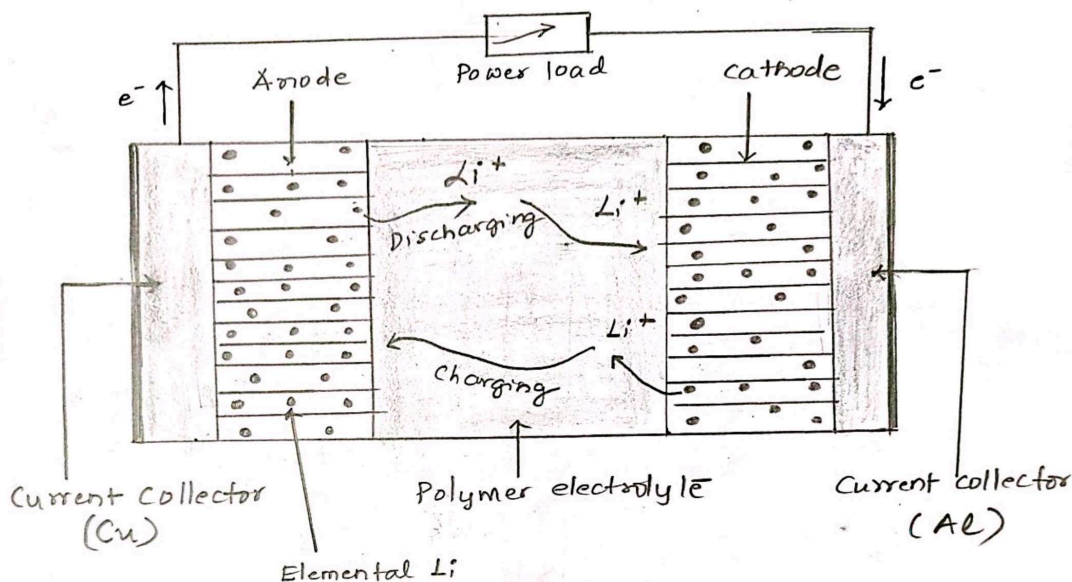 Power load
Anode
Cathode
e⁻
e⁻
Li⁺
Li⁺
Discharging
Li⁺
Charging
Current Collector
(Cu)
Polymer electrolyte
Current collector
(Al)
Elemental Li